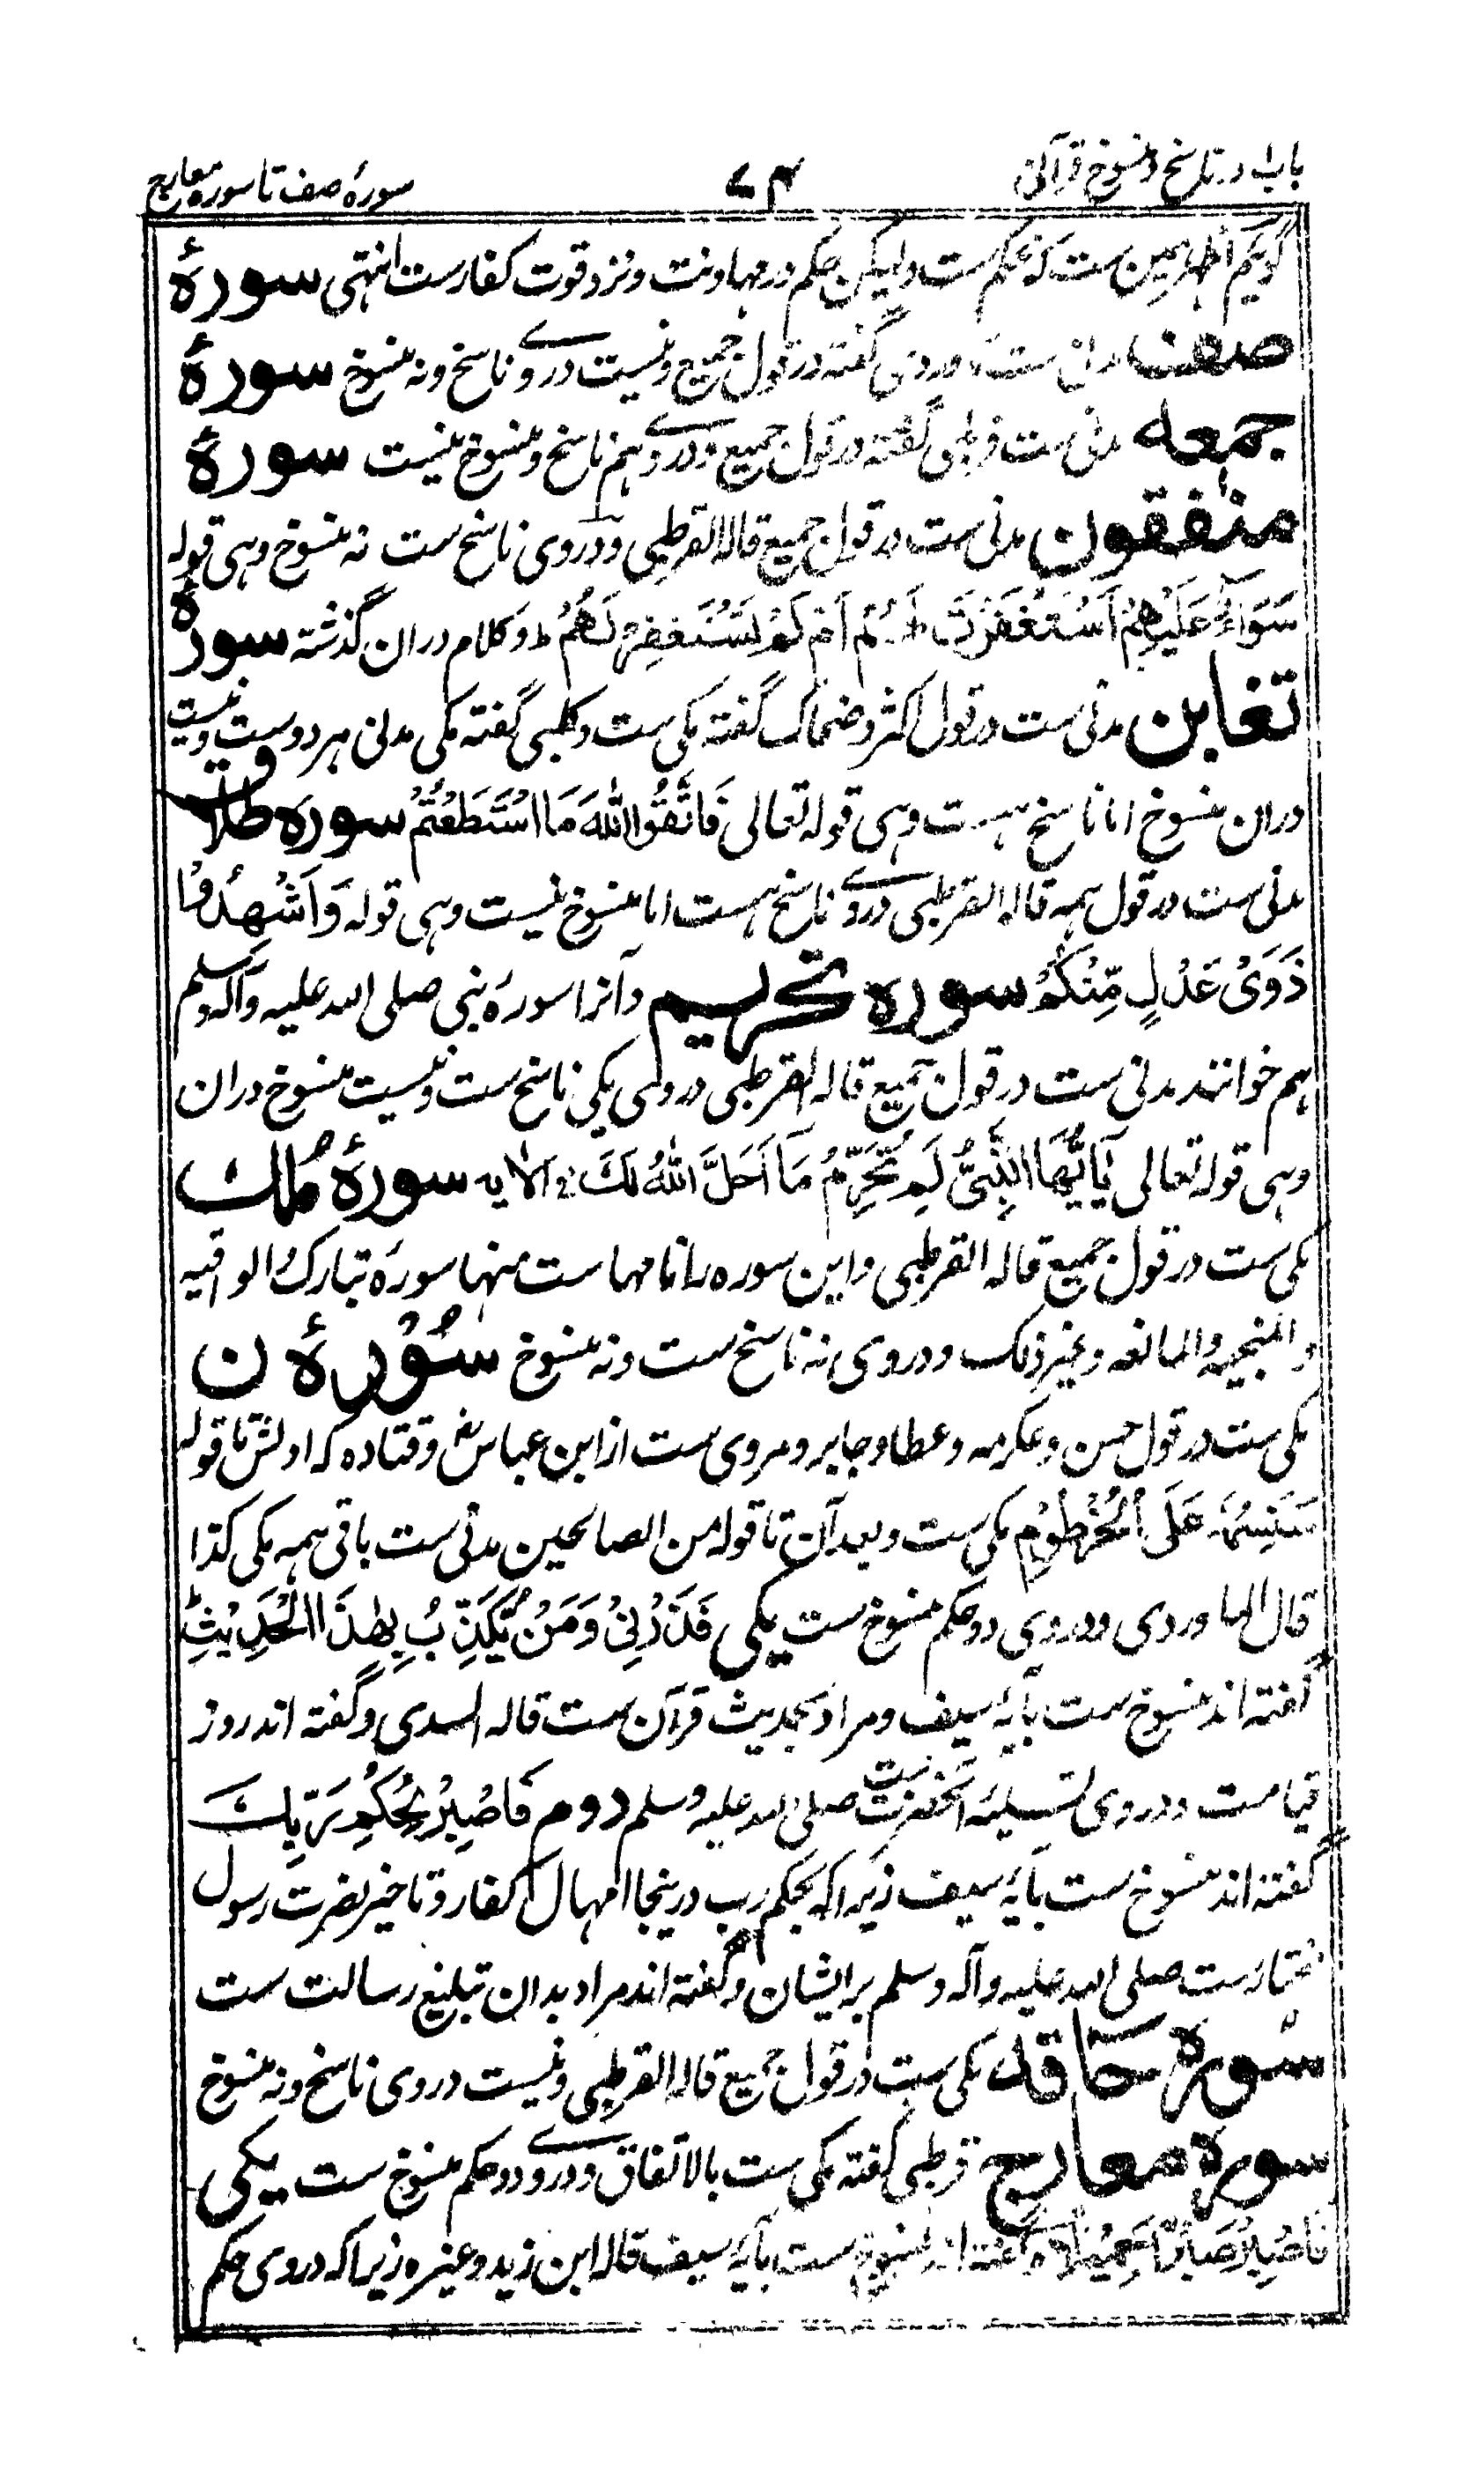 باب اول در ناسخ و منسوخ قرآنی ۷۴ سورهٔ صف تا سوره معارج
گویم اظهر همین ست که محکم ست ولیکن حکم در مهادنت و نزد قوت کفارست انتهی سورهٔ
صف مدنی ست ماوردی گفته در قول جمیع و نیست درو ے ناسخ و نه منسوخ سورهٔ
جمعه مدنی ست قرطبی گفته در قول جمیع و درو ے هم ناسخ و منسوخ نیست سورهٔ
منفقون مدنی ست در قول جمیع قاله القرطبی و در وی ناسخ ست نه منسوخ وهی قوله
سَوَآءٌ عَلَیْهِمْ اَسْتَغْفَرْتَ لَهُمْ اَمْ لَمْ تَسْتَغْفِرْ لَهُمْ ط و کلام دران گذشته سورهٔ
تغابن مدنی ست در قول اکثر و ضحاک گفته مکی ست و کلبی گفته مکی مدنی هر دوست و نیست
دران منسوخ اما ناسخ هست وهی قوله تعالی فَاتَّقُوا اللّٰهَ مَا اسْتَطَعْتُمْ سوره طلاق
مدنی ست در قول همه قاله القرطبی درو ے ناسخ هست اما منسوخ نیست وهی قوله وَاَشْهِدُوْا
ذَوَیْ عَدْلٍ مِّنْکُمْ سوره تحریم و آنرا سورهٔ نبی صلی الله علیه وآله وسلم
هم خوانند مدنی ست در قول جمیع قاله القرطبی در وی یکی ناسخ ست و نیست منسوخ دران
وهی قوله تعالی یٰاَیُّهَا النَّبِیُّ لِمَ تُحَرِّمُ مَا اَحَلَّ اللّٰهُ لَکَ الآیه سورهٔ مُلک
مکی ست در قول جمیع قاله القرطبی و این سوره را نامهاست منها سورهٔ تبارک و الواقیه
و المنجیه و المانعه و غیر ذلک و در وی نه ناسخ ست و نه منسوخ سُوْرهٔ ن
مکی ست در قول حسن و عکرمه و عطا و جابر و مروی ست از ابن عباس رض و قتاده که اولش تا قوله
سَنَسِمُهٗ عَلَی الْخُرْطُوْمِ مکی ست و بعد آن تا قوله من الصالحین مدنی ست باقی همه مکی کذا
قال الماوردی و در وی دو حکم منسوخ ست یکی فَذَرْنِیْ وَمَنْ یُّکَذِّبُ بِهٰذَا الْحَدِیْثِ ط
گفته اند منسوخ ست بآیهٔ سیف و مراد بحدیث قرآن ست قاله السدی و گفته اند روز
قیامت و در وی تسلیهٔ آنحضرت ست صلی الله علیه وسلم دوم فَاصْبِرْ لِحُکْمِ رَبِّکَ
گفته اند منسوخ ست بآیهٔ سیف زیرا که بحکم رب درینجا امهال کفار و تاخیر نصرت رسول
مختارست صلی الله علیه وآله وسلم بر ایشان و گفته اند مراد بدان تبلیغ رسالت ست
سوره حاقه مکی ست در قول جمیع قاله القرطبی و نیست در وی ناسخ و نه منسوخ
سوره معارج قرطبی گفته مکی ست بالاتفاق و درو ے دو حکم منسوخ ست یکی
فَاصْبِرْ صَبْرًا جَمِیْلًا گفته اند منسوخ ست بآیهٔ سیف قاله ابن زید و غیره زیرا که در وی حکم